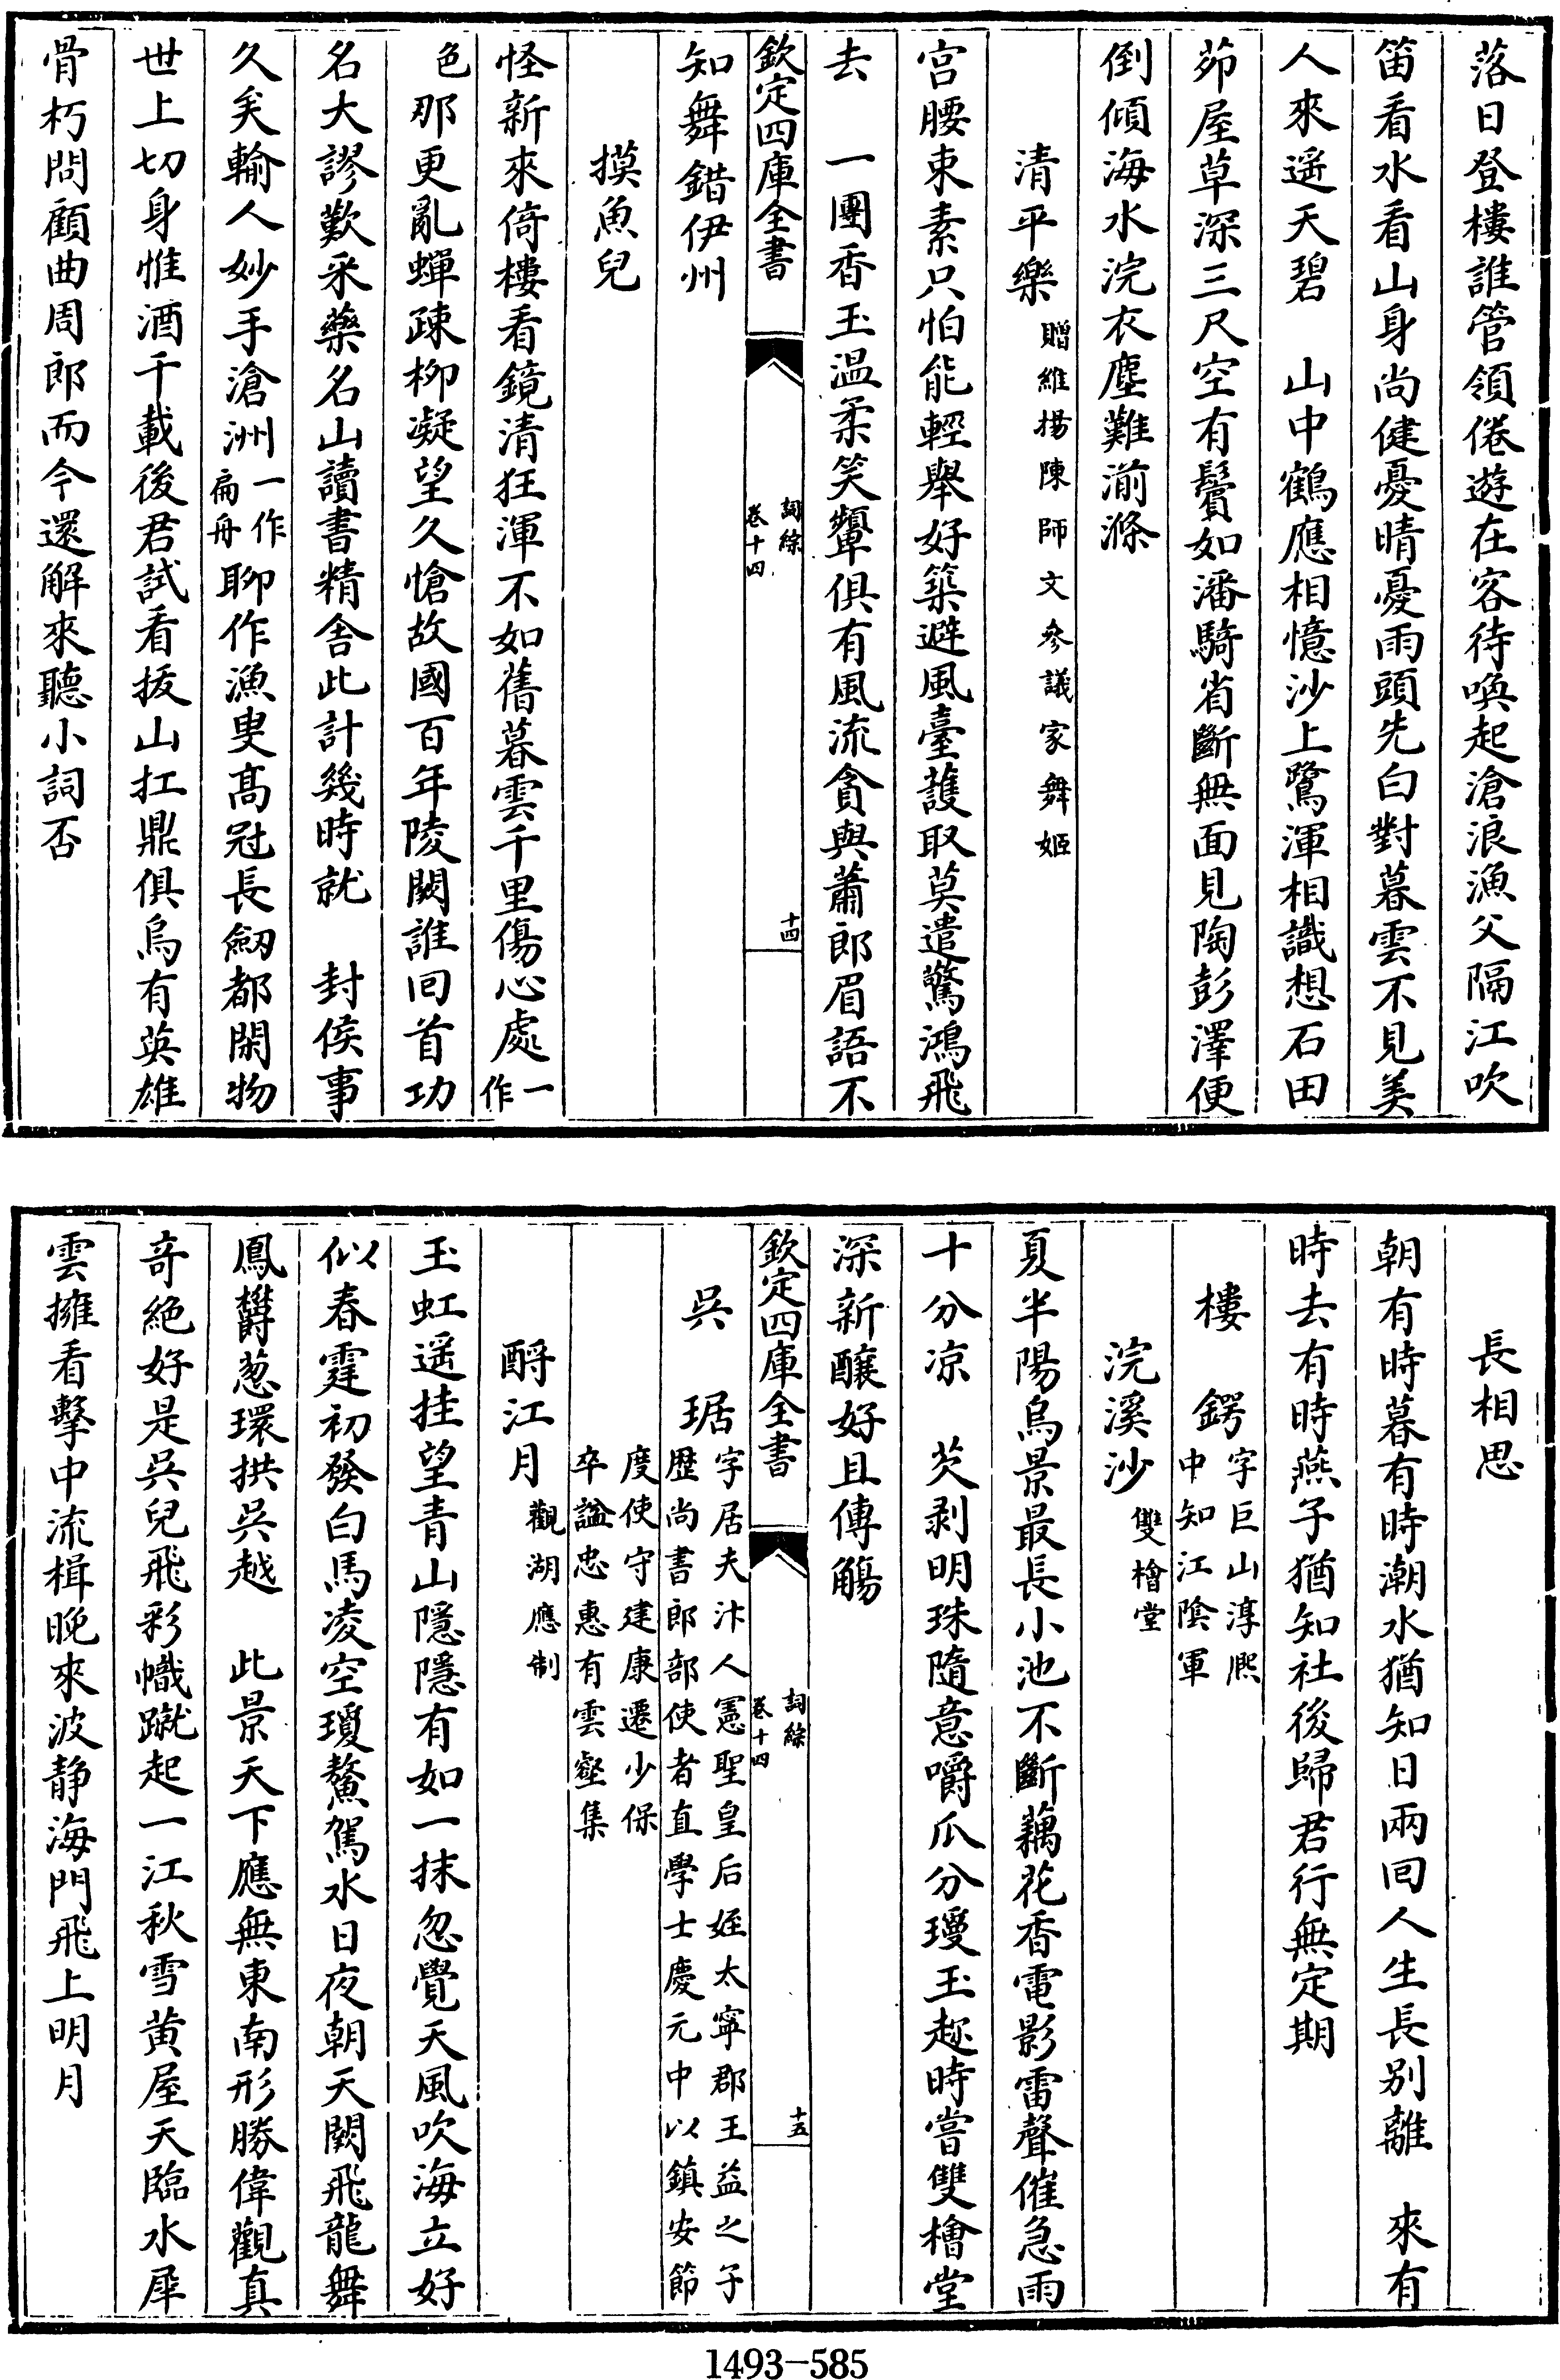 落日登樓誰管領倦遊在客待喚起滄浪漁父隔江吹
笛看水看山身尚健憂晴憂雨頭先白對暮雲不見美
人來遥天碧　山中鶴應相憶沙上鷺渾相識想石田
茆屋草深三尺空有鬢如潘騎省斷無面見陶彭澤便
倒傾海水浣衣塵難湔滌
清平樂贈維揚陳師文參議家舞姬
宮腰束素只怕能輕舉好築避風臺護取莫遣驚鴻飛
去　一團香玉温柔笑顰俱有風流貪與蕭郎眉語不
欽定四庫全書
詞綜
卷十四
十四
知舞錯伊州
摸魚兒
怪新來倚樓看鏡清狂渾不如舊暮雲千里傷心處一作
色那更亂蟬疎柳凝望久愴故國百年陵闕誰回首功
名大謬歎采藥名山讀書精舍此計幾時就　封侯事
久矣輸人妙手滄洲一作扁舟聊作漁叟髙冠長劒都閑物
世上切身惟酒千載後君試看拔山扛鼎俱烏有英雄
骨朽問顧曲周郎而今還解來聽小詞否
長相思
朝有時暮有時潮水猶知日兩回人生長别離　來有
時去有時燕子猶知社後歸君行無定期
樓　鍔字巨山淳熙中知江陰軍
浣溪沙雙檜堂
夏半陽烏景最長小池不斷藕花香電影雷聲催急雨
十分凉　芡剥明珠隨意嚼瓜分瓊玉趂時嘗雙檜堂
深新釀好且傳觴
欽定四庫全書
詞綜
卷十四
十五
吳　琚字居夫汴人憲聖皇后姪太寧郡王益之子歴尚書郎部使者直學士慶元中以鎮安節
度使守建康遷少保卒諡忠惠有雲壑集
酹江月觀湖應制
玉虹遥挂望青山隱隱有如一抹忽覺天風吹海立好
似春霆初發白馬凌空瓊鰲駕水日夜朝天闕飛龍舞
鳳鬱葱環拱吳越　此景天下應無東南形勝偉觀真
竒絶好是吳兒飛彩幟蹴起一江秋雪黄屋天臨水犀
雲擁看擊中流楫晩來波静海門飛上明月
1493—585